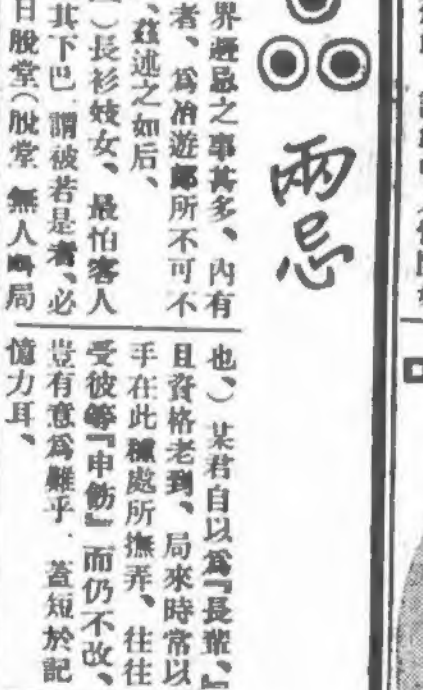 兩忌
界避忌之事甚多、內有
者、爲冶遊郞所不可不
、茲述之如后、
）長衫妓女、最怕客人
其下巴、謂被若是者、必
日脫堂（脫堂 無人叫局
也、）某君自以爲『長輩、』
且資格老到、局來時常以
手在此種處所撫弄、往往
受彼等『申飭』而仍不改、
豈有意爲難乎．蓋短於記
憶力耳、